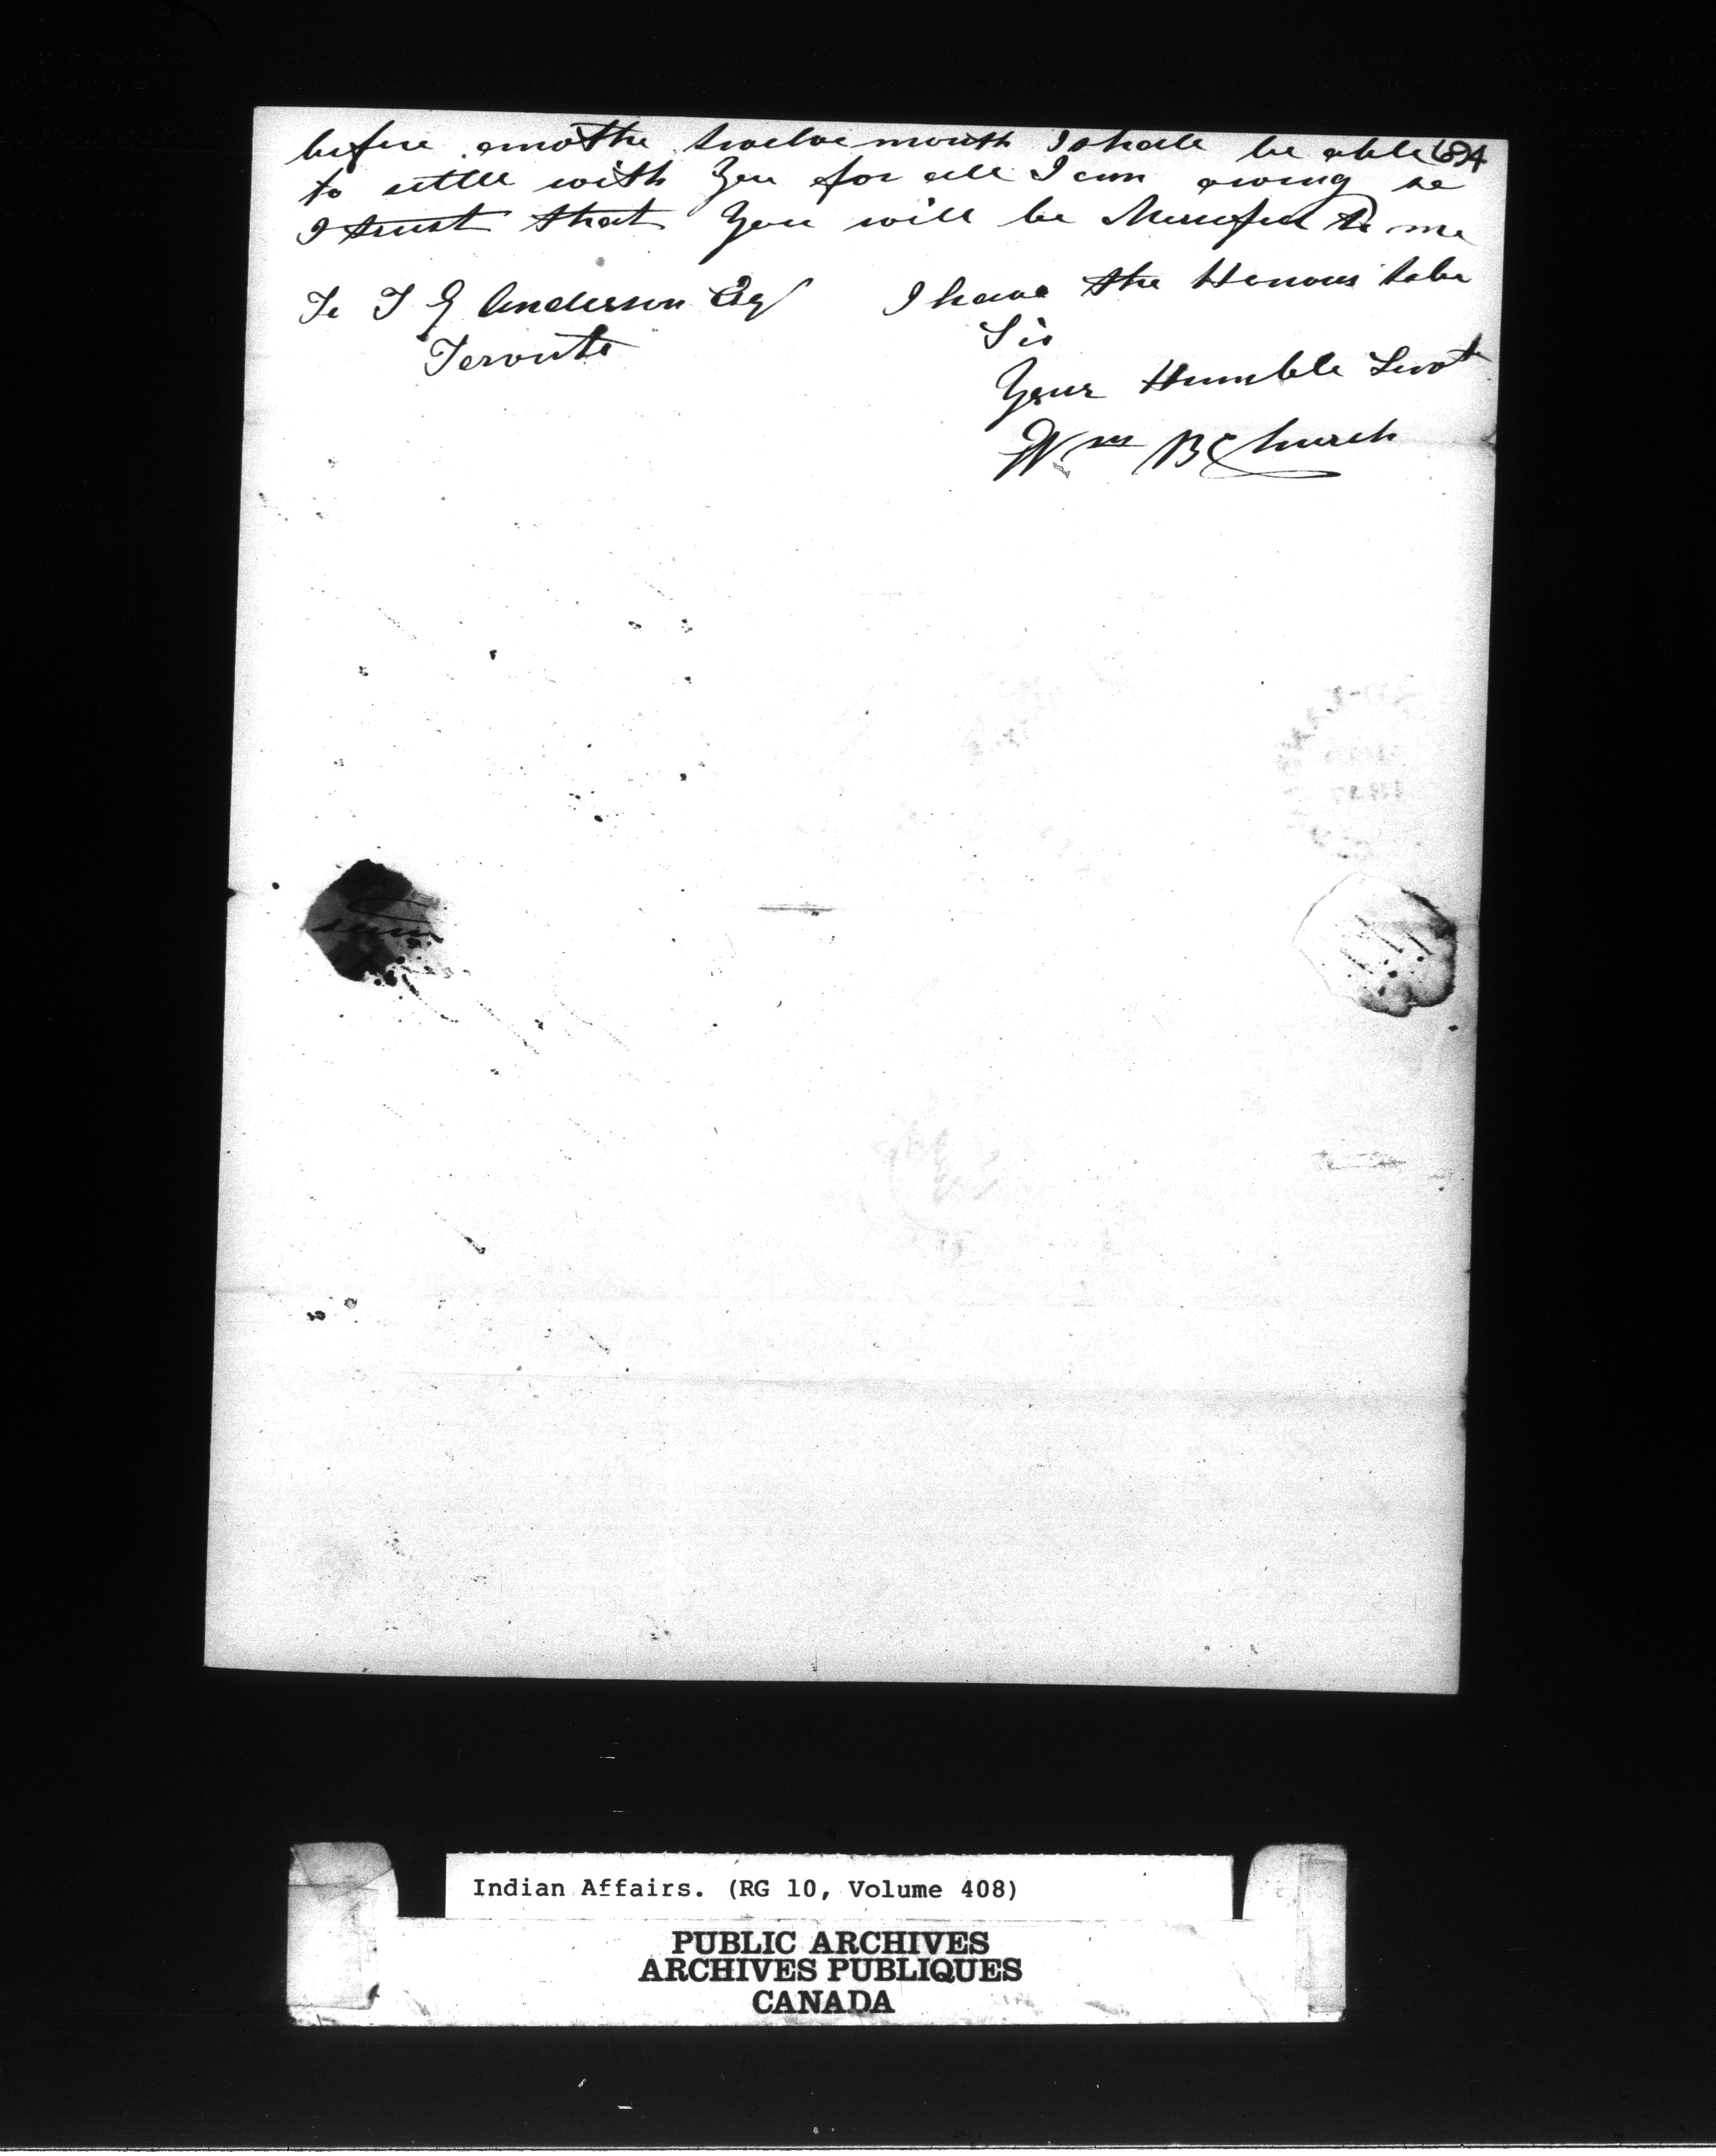 before anothe twelve month I shall be able 684
to settle with You for all I am owing so
I trust that You will be Mercyful to me
I have the Honour tobe
To T G Anderson Esq
Sir
Toronto
Your Humble Servt
Wm B Church
Indian Affairs. (RG 10, Volume 408)
PUBLIC ARCHIVES
ARCHIVES PUBLIQUES
CANADA